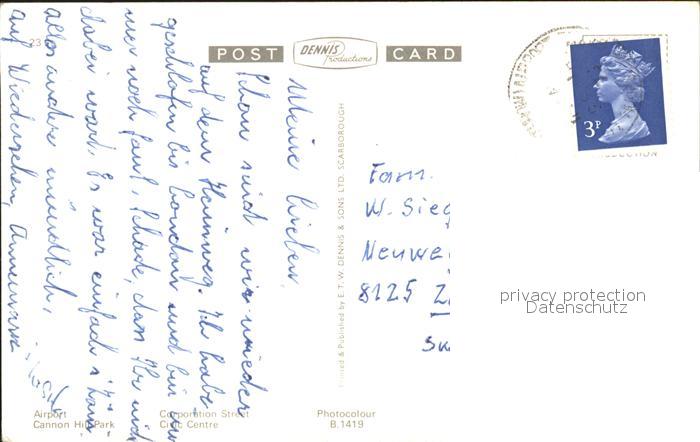 23
POST DENNIS Productions CARD
3P
Meine Lieben,
Schon sind wir wieder
auf dem Heimweg. Ich habe
geschlafen bis London und bin
nur noch faul. Schade, dass Ihr nicht
dabei wart. Es war einfach
alles andere mündlich,
auf Wiedersehen, Annemarie
Printed & Published by E.T.W. DENNIS & SONS LTD. SCARBOROUGH
Fam.
W. Sieg
Neuwe
8125 Z
privacy protection
Datenschutz
Airport Corporation Street Photocolour
Cannon Hill Park Civic Centre B.1419